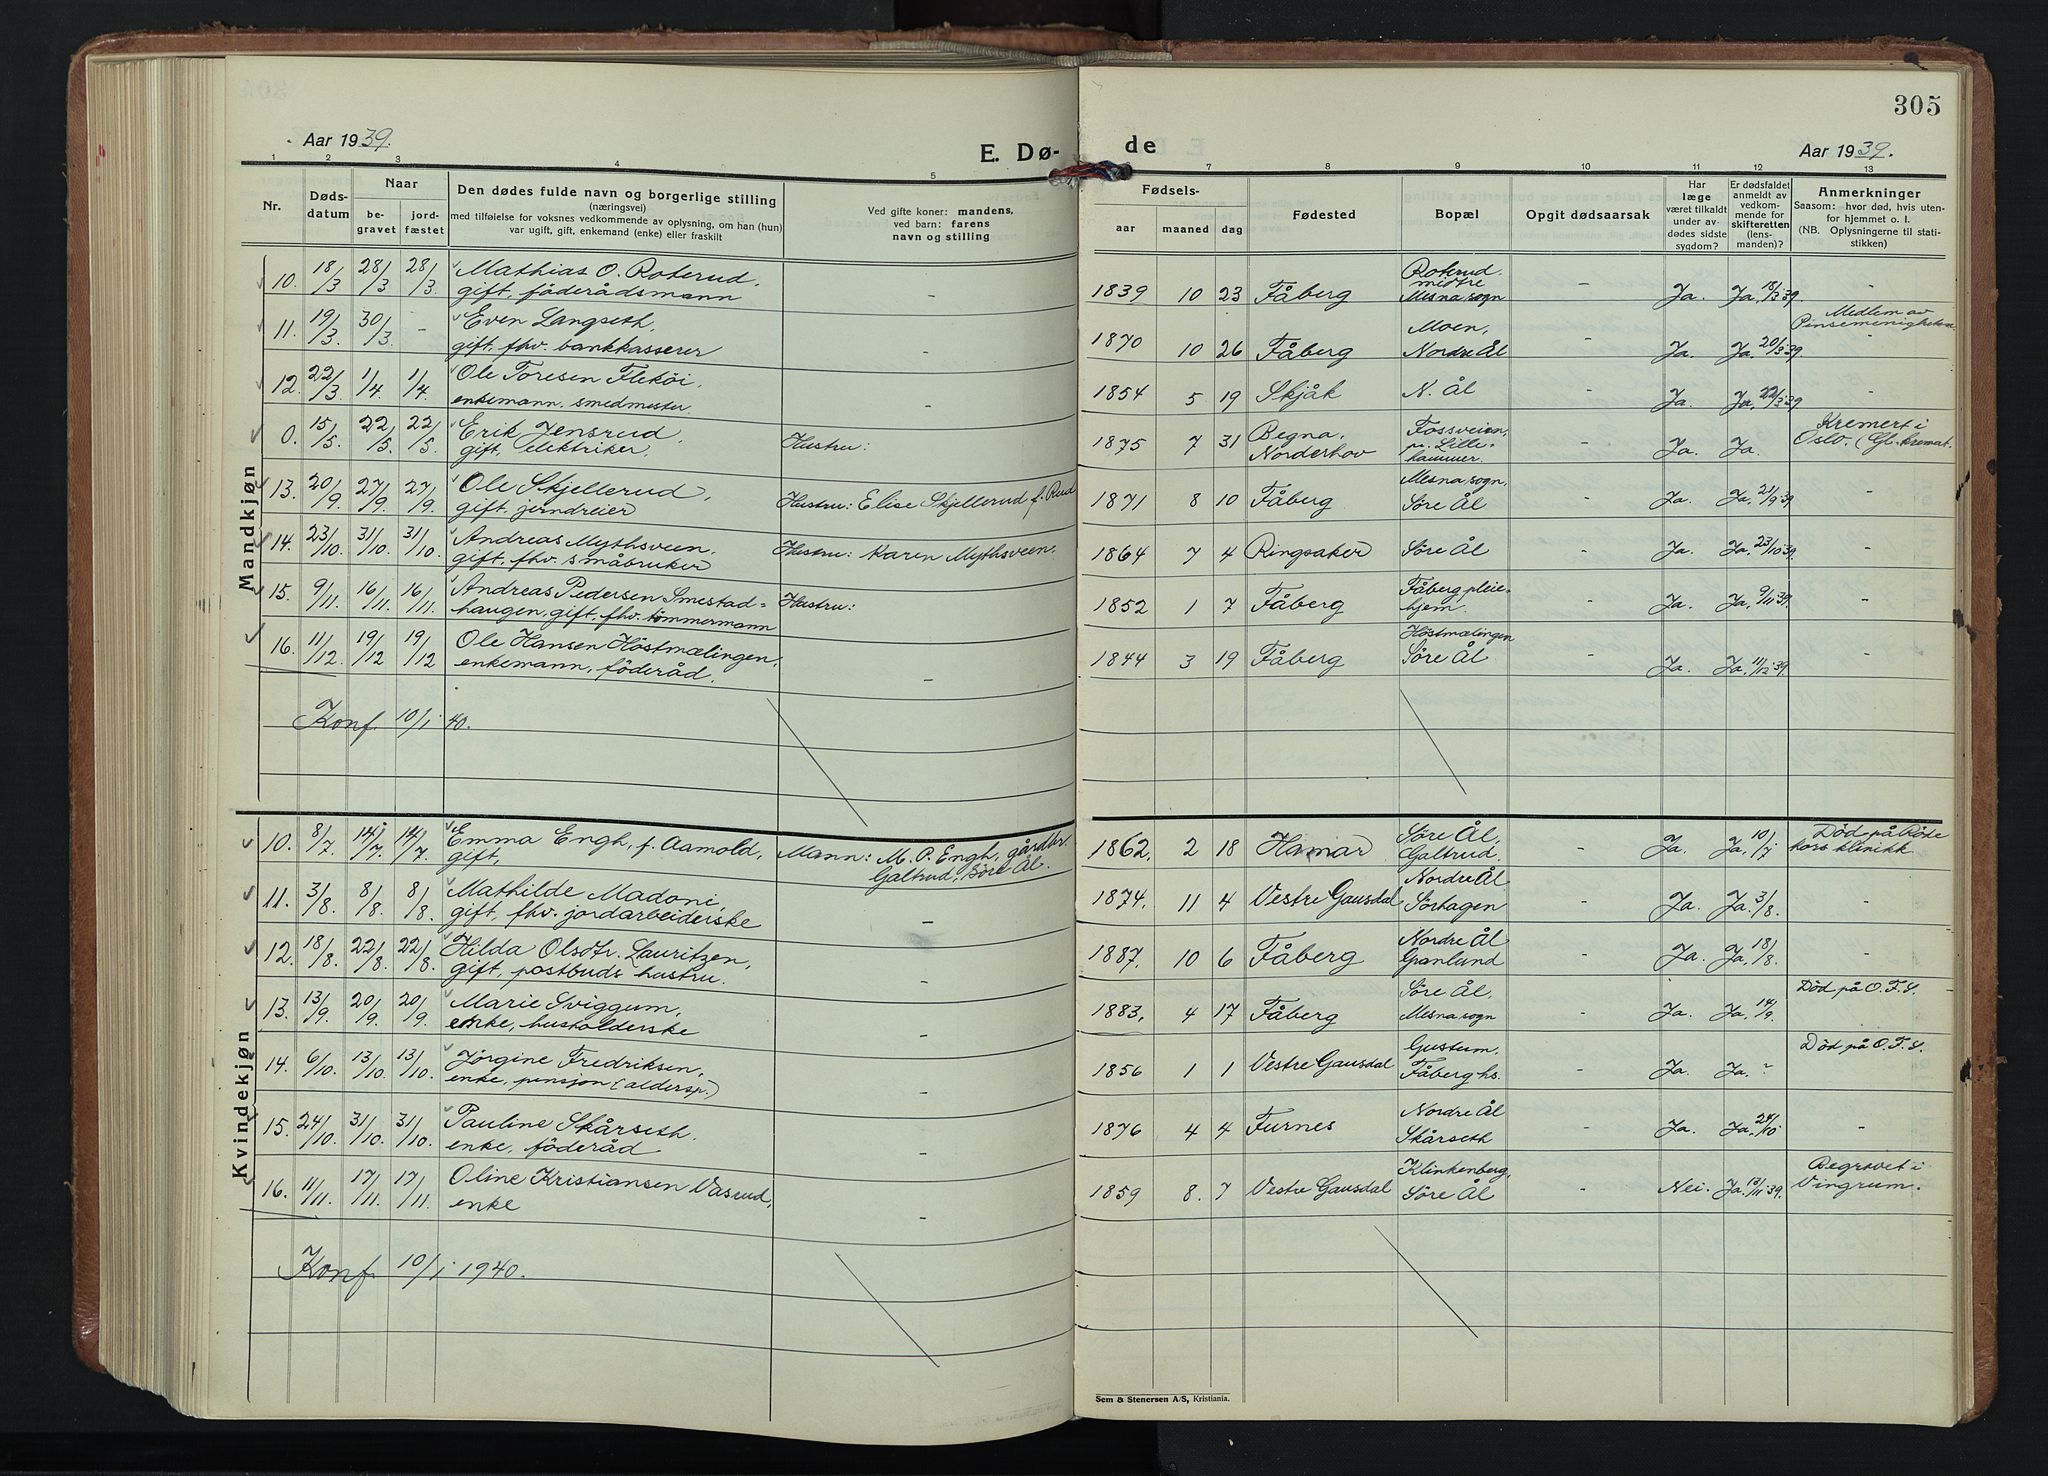 305
Aar 1939.
E. Dø-
de
Aar 1939.
1 2 3 4 5 7 8 9 10 11 12 13
Nr.
Døds-
datum
Naar
be-
gravet
jord-
fæstet
Den dødes fulde navn og borgerlige stilling
(næringsvei)
med tilføielse for voksnes vedkommende av oplysning, om han (hun)
var ugift, gift, enkemand (enke) eller fraskilt
Ved gifte koner: mandens,
ved barn: farens
navn og stilling
Fødsels-
aar maaned dag
Fødested
Bopæl
Opgit dødsaarsak
Har
læge
været tilkaldt
under av-
dødes sidste
sygdom?
Er dødsfaldet
anmeldt av
vedkom-
mende for
skifteretten
(lens-
manden)?
Anmerkninger
Saasom: hvor død, hvis uten-
for hjemmet o. l.
(NB. Oplysningerne til stati-
stikken)
Mandkjøn
10. 18/3 28/3 28/3 Mathias O. Roterud,
gift, föderådsmann - 1839 10 23 Fåberg Roterud
midtre
Mesna sogn - Ja. Ja, 18/3 39 -
11. 19/3 30/3 - Even Langseth,
gift, fhv. bankkasserer - 1870 10 26 Fåberg Moen,
Nordre Ål - Ja. Ja, 20/3 39 Medlem av
Pinsemenigheten
12. 22/3 1/4 1/4 Ole Toresen Flekøi,
enkemann, smedmester - 1854 5 19 Skjåk N. Ål - Ja. Ja, 22/3 39
0. 15/5 22/5 22/5 Erik Jensrud,
gift, elektriker Hustru: 1875 7 31 Begna,
Norderhov Fossveien,
pr. Lille-
hammer. - Ja. Ja. Kremert i
Oslo. (Gl. kremat.
13. 20/9 27/9 27/9 Ole Skjellerud,
gift, jerndreier Hustru: Elise Skjellerud f. Rud 1871 8 10 Fåberg Mesna sogn.
Søre Ål - Ja. Ja, 21/9 39 -
14. 23/10 31/10 31/10 Andreas Mythsveen,
gift, fhv. småbruker Hustru: Karen Mythsveen. 1864 7 4 Ringsaker Søre Ål - Ja. Ja, 23/10 39 -
15. 9/11 16/11 16/11 Andreas Pedersen Smestad=
haugen, gift, fhv. tømmermann Hustru: 1852 1 7 Fåberg Fåberg pleie-
hjem. - Ja. Ja, 9/11 39. -
16. 11/12 19/12 19/12 Ole Hansen Höstmælingen,
enkemann, föderåd. - 1844 3 19 Fåberg Höstmælingen
Søre Ål - Ja. Ja, 11/12 39. -
Konf. 10/1 40.
Kvindekjøn
10. 8/7 14/7 14/7 Emma Engh, f. Aamold,
gift, Mann: M. P. Engh, gårdbr.
Galtrud, Søre Ål. 1862. 2 18 Hamar Søre Ål,
Galtrud. - Ja. Ja, 10/7 Død på Røde
kors klinikk.
11. 3/8 8/8 8/8 Mathilde Madoni,
gift, fhv. jordarbeiderske - 1874. 11 4 Vestre Gausdal Nordre Ål
Sørhagen - Ja. Ja, 3/8. -
12. 18/8 22/8 22/8 Hilda Olsdtr. Lauritzen,
gift, postbuds hustru. - 1887. 10 6 Fåberg Nordre Ål
Granlund - Ja. Ja, 18/8. -
13. 13/9 20/9 20/9 Marie Sviggum,
enke, husholderske - 1883. 4 17 Fåberg Søre Ål,
Mesna sogn - Ja. Ja, 14/9. Død på O.F.S.
14. 6/10 13/10 13/10 Jörgine Fredriksen,
enke, pensjon (aldersp.) - 1856 1 1 Vestre Gausdal Gustum.
Fåberg hs. - Ja. Ja. ? Død på O.F.S.
15. 24/10 31/10 31/10 Pauline Skårseth.
enke, föderåd. - 1876 4 4 Furnes Nordre Ål
Skårseth - Ja. Ja, 24/10 -
16. 11/11 17/11 17/11 Oline Kristiansen Vasrud,
enke - 1859 8. 7 Vestre Gausdal Klinkenberg,
Søre Ål - Nei. Ja, 13/11 39. Begravet i
Vingrum.
Konf. 10/1 1940.
Sem & Stenersen A/S, Kristiania.